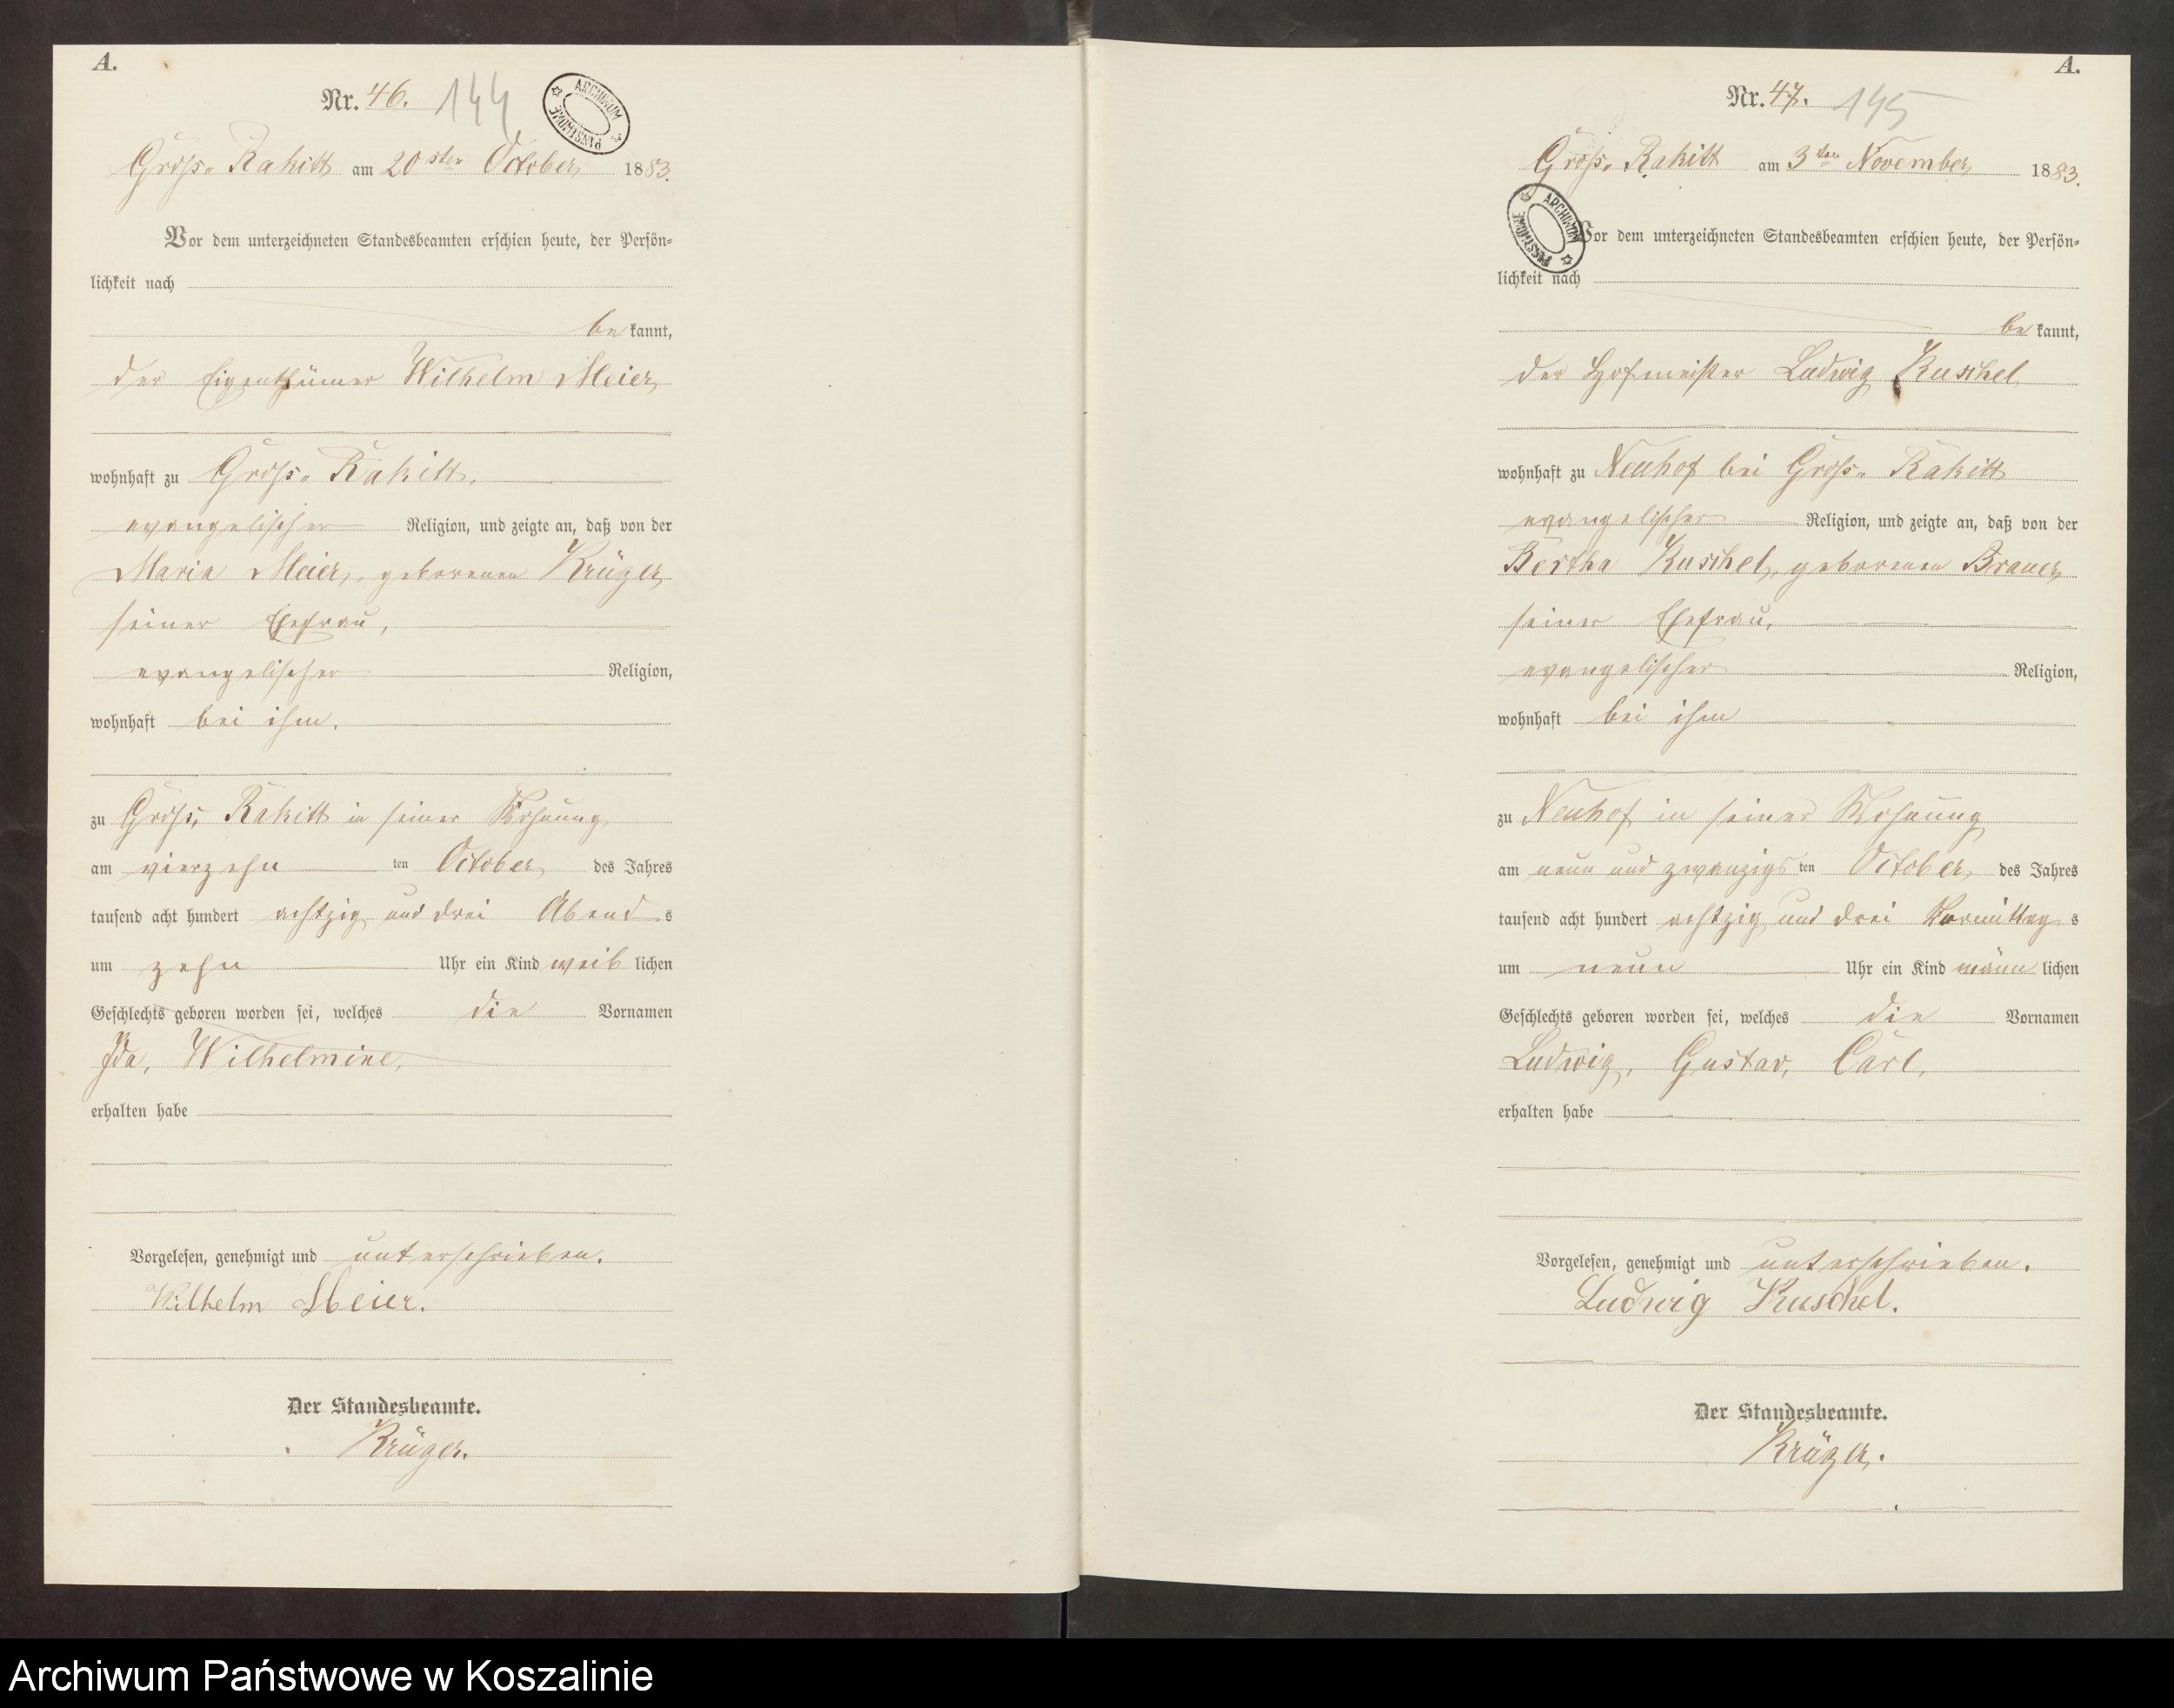 A.
Nr. 46. 144
ARCHIWUM PAŃSTWOWE
Gross- Rakitt am 20sten October 1883.
Vor dem unterzeichneten Standesbeamten erschien heute, der Persön-
lichkeit nach
be kannt,
der Eigenthümer Wilhelm Meier
wohnhaft zu Gross- Rakitt,
evangelischer Religion, und zeigte an, daß von der
Maria Meier, geborenen Krüger,
seiner Ehefrau,
evangelischer Religion,
wohnhaft bei ihm.
zu Gross- Rakitt in seiner Wohnung
am vierzehn ten October des Jahres
tausend acht hundert achtzig und drei Abend s
um zehn Uhr ein Kind weib lichen
Geschlechts geboren worden sei, welches die Vornamen
Ida, Wilhelmine,
erhalten habe
Vorgelesen, genehmigt und unterschrieben.
Wilhelm Meier.
Der Standesbeamte.
Krüger.
A.
Nr. 47. 145
Gross- Rakitt am 3ten November 1883.
ARCHIWUM PAŃSTWOWE
Vor dem unterzeichneten Standesbeamten erschien heute, der Persön-
lichkeit nach
be kannt,
der Hofmeister Ludwig Kuschel
wohnhaft zu Neuhof bei Gross- Rakitt
evangelischer Religion, und zeigte an, daß von der
Bertha Kuschel, geborenen Brauer,
seiner Ehefrau,
evangelischer Religion,
wohnhaft bei ihm
zu Neuhof in seiner Wohnung
am neun und zwanzigs ten October des Jahres
tausend acht hundert achtzig und drei Vormittag s
um neun Uhr ein Kind männ lichen
Geschlechts geboren worden sei, welches die Vornamen
Ludwig, Gustav, Carl,
erhalten habe
Vorgelesen, genehmigt und unterschrieben.
Ludwig Kuschel.
Der Standesbeamte.
Krüger.
Archiwum Państwowe w Koszalinie